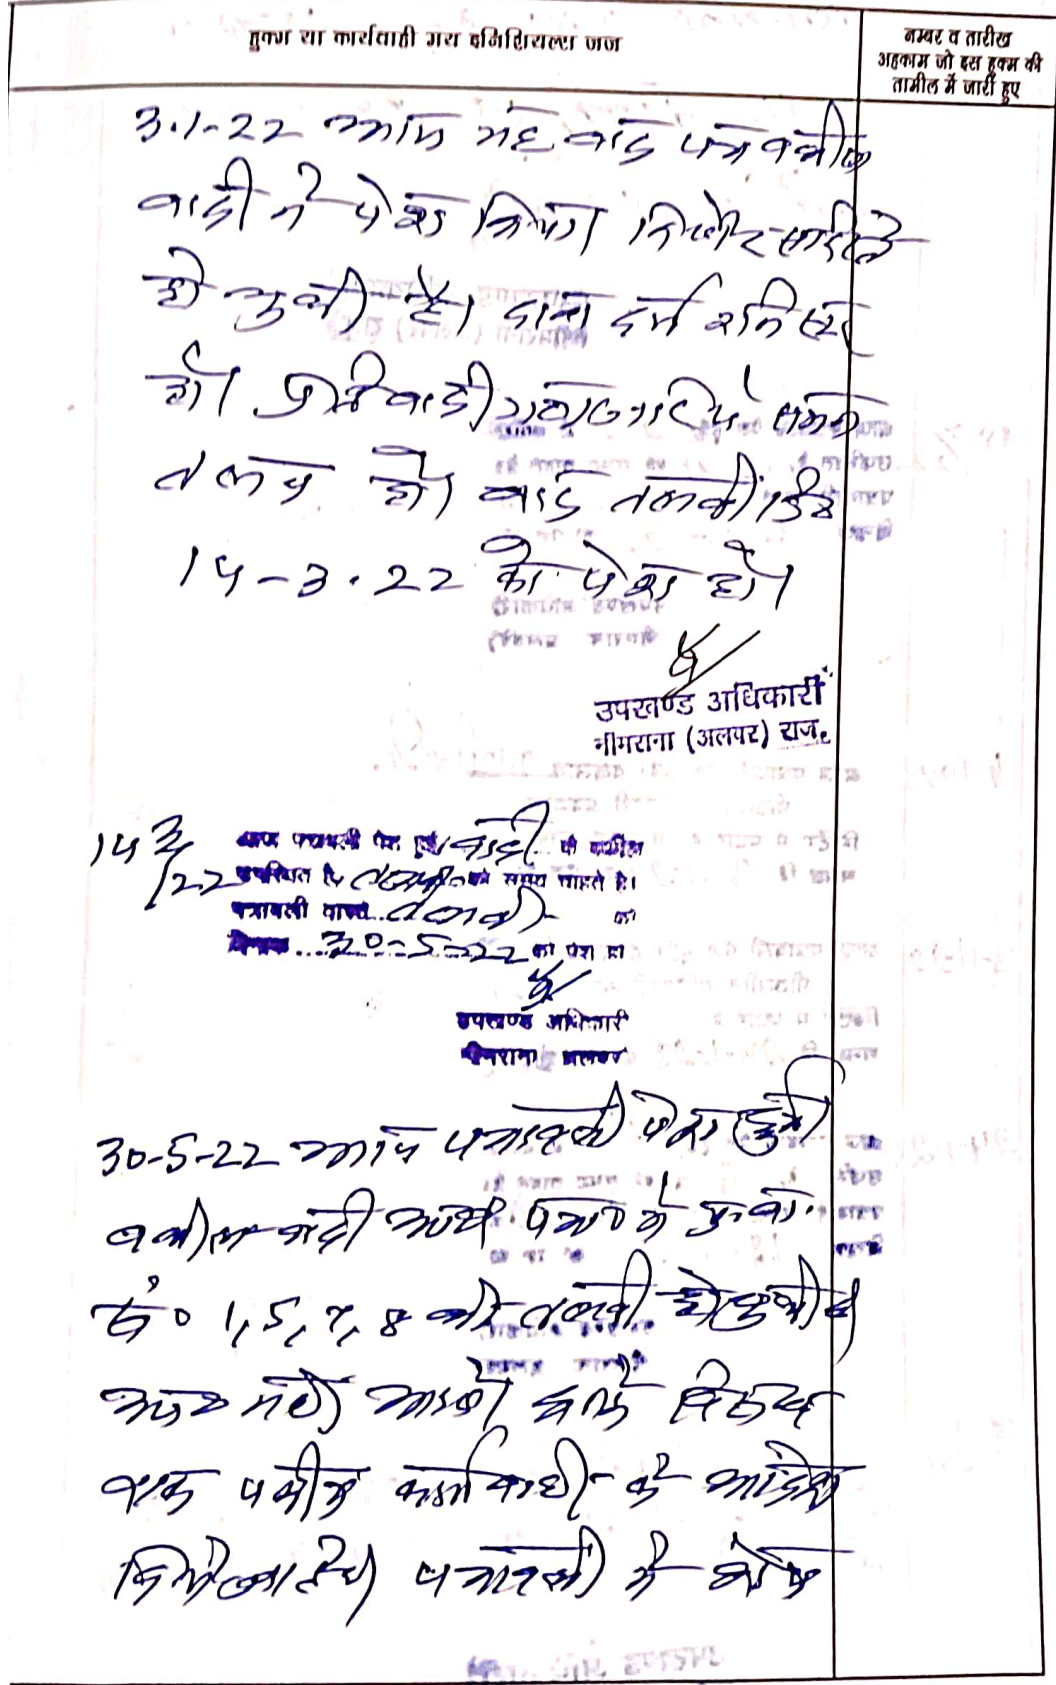 हुक्म या कार्यवाही मय इनिशियल्स जज
नम्बर व तारीख
अहकाम जो इस हुक्म की
तामील में जारी हुए
3.1-22 आज यह वाद पत्र वकील
वादी ने पेश किया। रिपोर्ट
हो चुकी है। दावा दर्ज रजिस्टर
हो। प्रतिवादीगण जरिये सम्मन
तलब हो। वाद तलबी दिनांक
14-3.22 को पेश हो।
उपखण्ड अधिकारी
नीमराना (अलवर) राज.
14 3/22
आज पत्रावली पेश हुई वादी के वकील
उपस्थित है। तलबी को समय चाहते है।
पत्रावली वास्ते तलबी को
दिनांक 30-5-22 को पेश हो
उपखण्ड अधिकारी
नीमराना अलवर
30-5-22 आज पत्रावली पेश हुई
वकील वादी
सं० 1, 5, 7, 8 की तलबी हो चुकी है
नहीं
एक पक्षीय कार्यवाही के आदेश
दिये जाते है। पत्रावली में